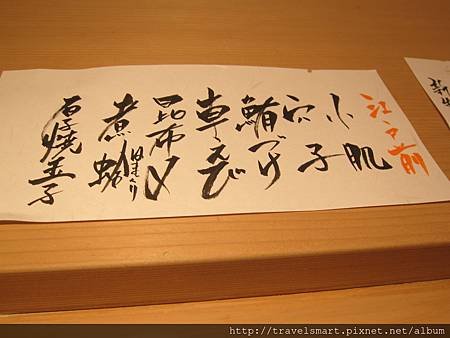 江戸前
小肌
穴子
鮪づけ
車えび
昆布〆
煮蛤
はまぐり
厚焼玉子
http://travelsmart.pixnet.net/album